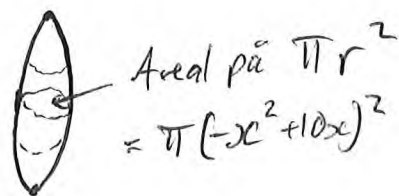 Areal på πr²
= π(-x²+10x)²